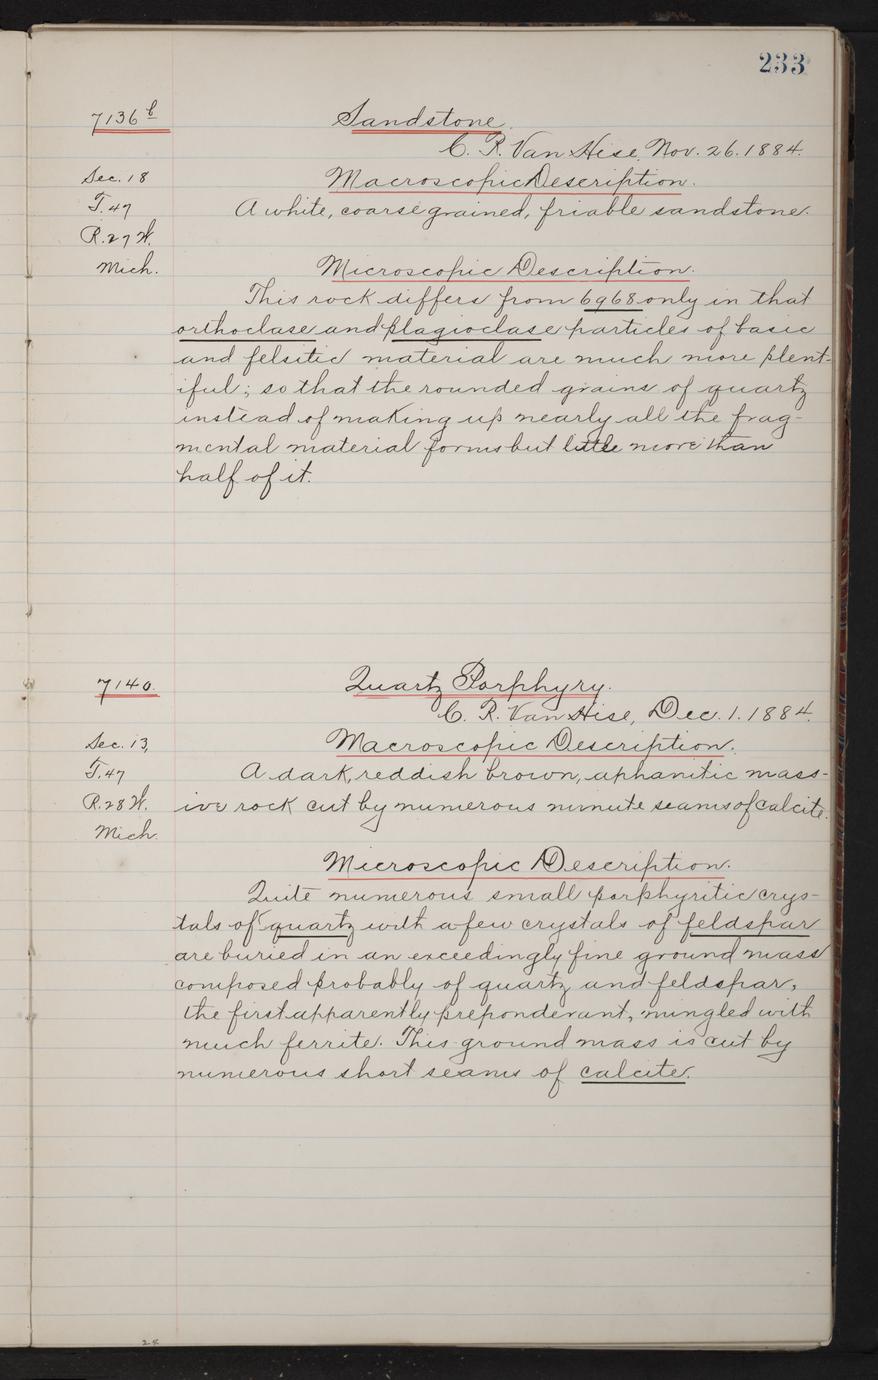 233
7136 b
Sandstone.
C. R. Van Hise, Nov. 26. 1884.
Sec. 18
Macroscopic Description.
T. 47
A white, coarse grained, friable sandstone.
R. 27 W.
Mich.
Microscopic Description.
This rock differs from 6968 only in that
orthoclase and plagioclase particles of basic
and felsitic material are much more plent-
iful; so that the rounded grains of quartz
instead of making up nearly all the frag-
mental material forms but little more than
half of it.
7140.
Quartz Porphyry.
C. R. Van Hise, Dec. 1. 1884.
Sec. 13,
Macroscopic Description.
T. 47
A dark, reddish brown, aphanitic mass-
R. 28 W.
ive rock cut by numerous minute seams of calcite.
Mich.
Microscopic Description.
Quite numerous small porphyritic crys-
tals of quartz with a few crystals of feldspar
are buried in an exceedingly fine ground mass
composed probably of quartz and feldspar,
the first apparently preponderant, mingled with
much ferrite. This ground mass is cut by
numerous short seams of calcite.